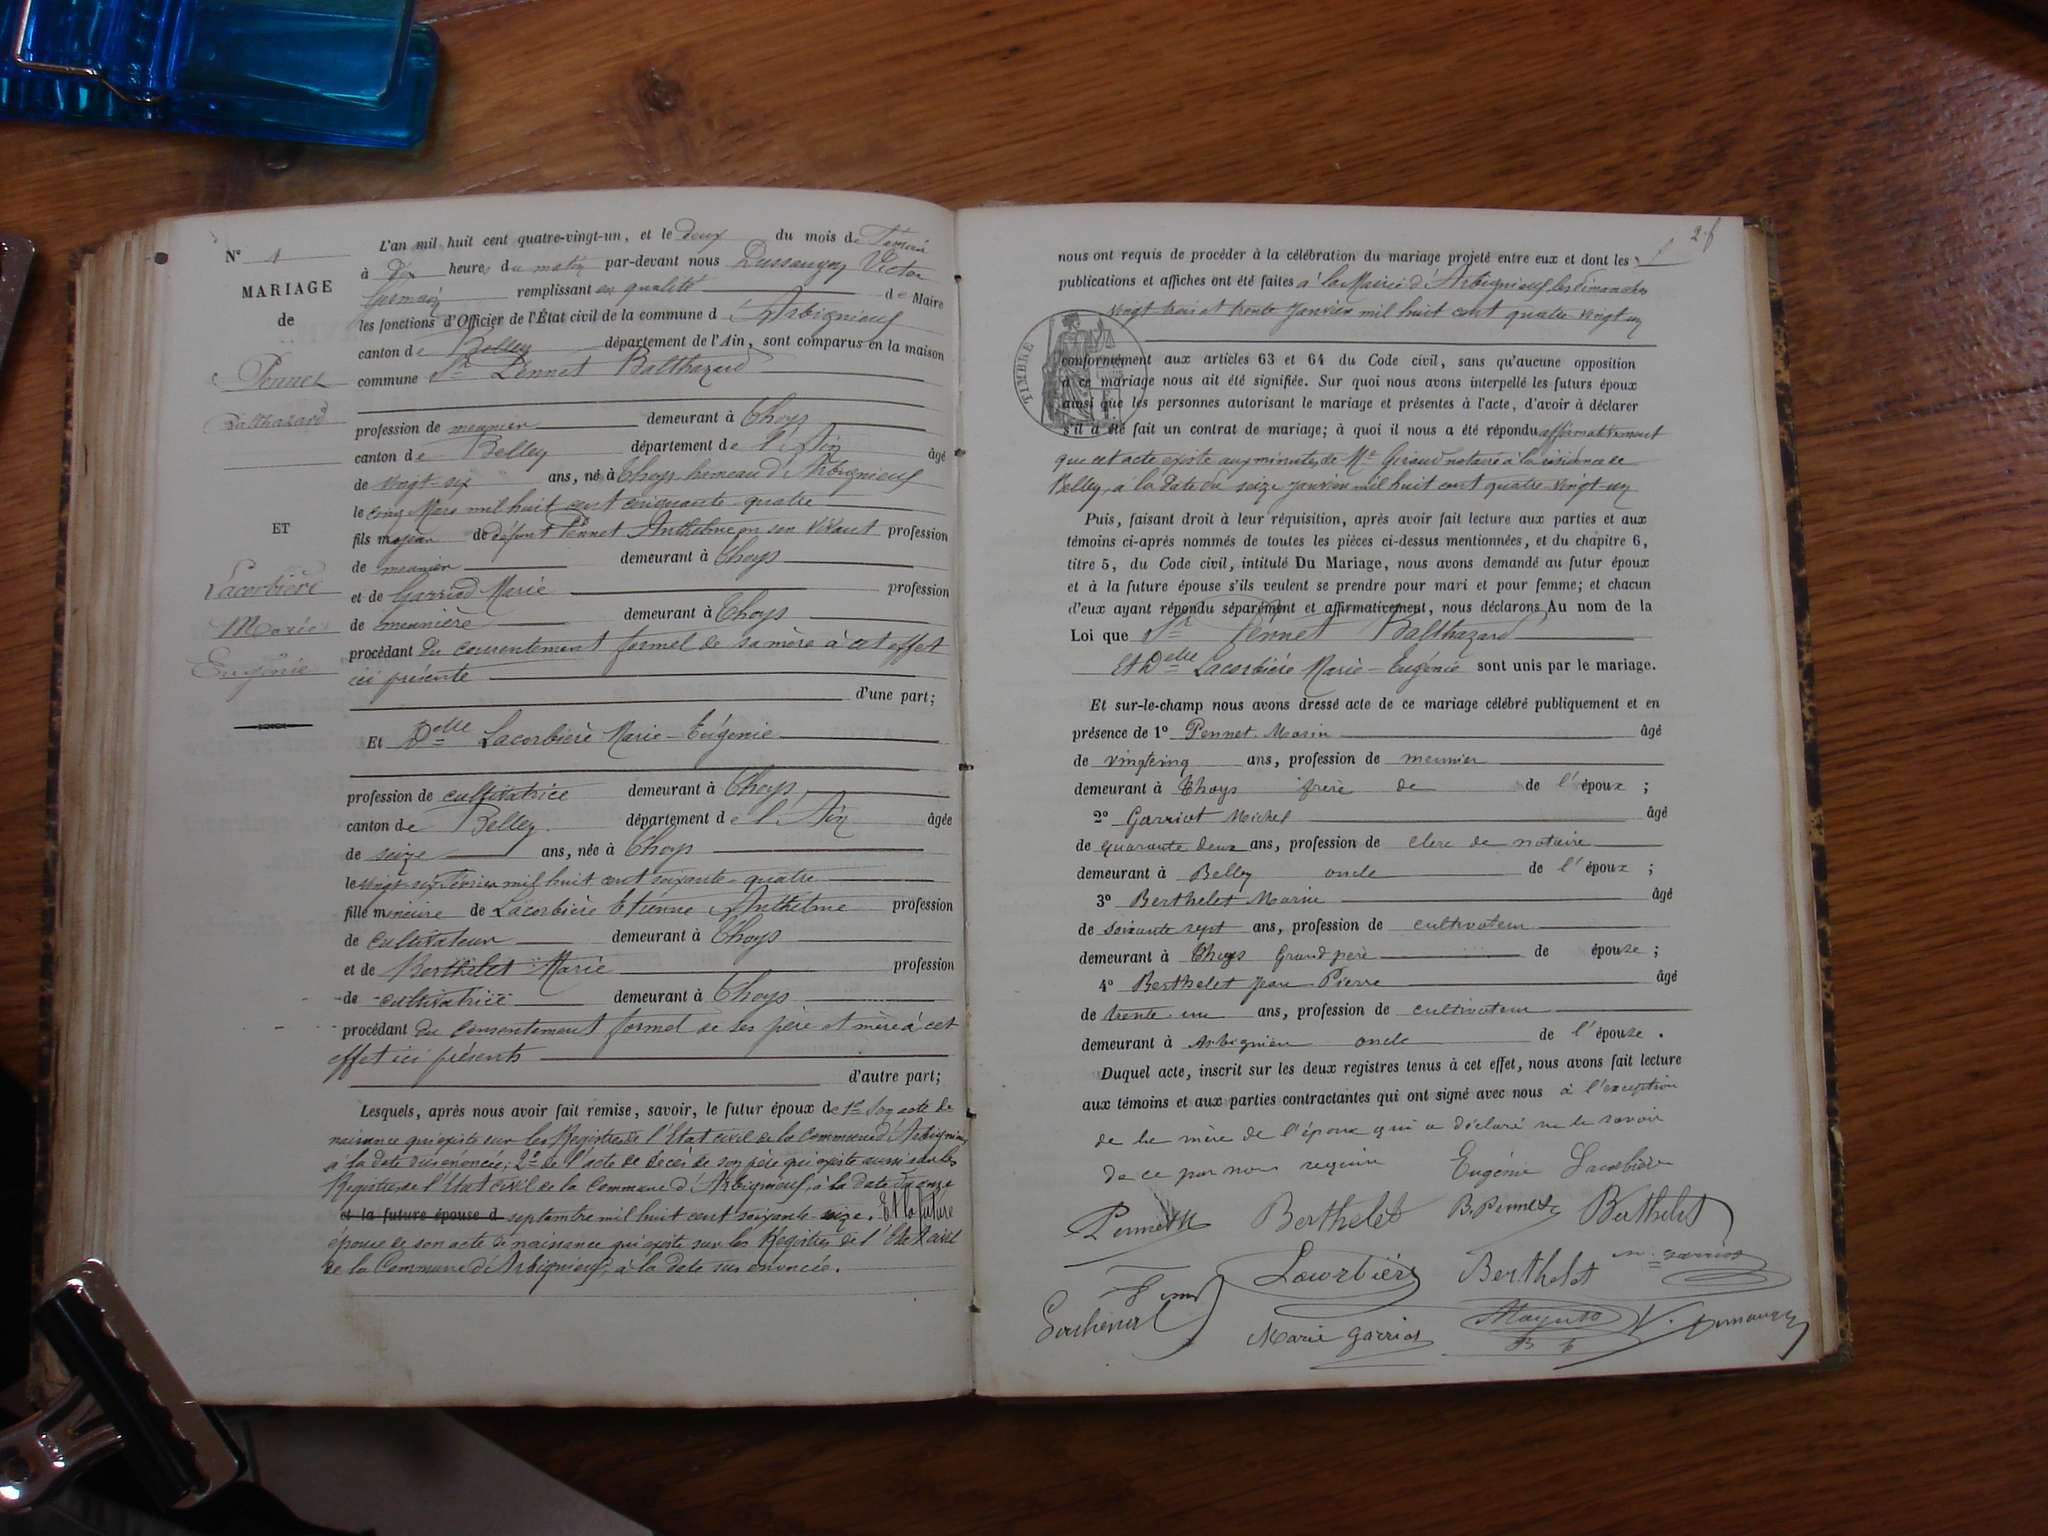 N° 1
MARIAGE
de
Pennet
Balthazard
ET
Lacorbière
Marie
Eugénie
L'an mil huit cent quatre-vingt-un, et le deux du mois de
à Dix heures du matin par-devant nous Dussaugey Victor
Germain remplissant en qualité de Maire
les fonctions d'Officier de l'État civil de la commune d'Arbignieuf
canton de Belley département de l'Ain, sont comparus en la maison
commune Sr Pennet Balthazard
profession de meunier demeurant à Thoys
canton de Belley département de l'Ain âgé
de vingt-six ans, né à Thoys hameau d'Arbignieuf
le cinq Mars mil huit cent cinquante-quatre
fils majeur de défunt Pennet Anthelme en son vivant profession
de meunier demeurant à Thoys
et de Garriod Marie profession
de meunière demeurant à Thoys
procédant du consentement formel de sa mère à cet effet
ici présente
d'une part;
Et Delle Lacorbière Marie-Eugénie
profession de cultivatrice demeurant à Thoys
canton de Belley département de l'Ain âgée
de seize ans, née à Thoys
le vingt-six Février mil huit cent soixante-quatre
fille mineure de Lacorbière Etienne Anthelme profession
de cultivateur demeurant à Thoys
et de Berthelet Marie profession
de cultivatrice demeurant à Thoys
procédant du consentement formel de ses père et mère à cet
effet ici présents
d'autre part;
Lesquels, après nous avoir fait remise, savoir, le futur époux de 1° Son acte de
naissance qui existe sur les Registres de l'Etat civil de la Commune d'Arbignieuf
à la date susénoncée; 2° de l'acte de décès de son père qui existe aussi sur les
Registres de l'Etat civil de la Commune d'Arbignieuf, à la date du onze
et la future épouse d septembre mil huit cent soixante seize. Et la future
épouse de son acte de naissance qui existe sur les Registres de l'Etat civil
de la Commune d'Arbignieuf, à la date sus énoncée.
nous ont requis de procéder à la célébration du mariage projeté entre eux et dont les
publications et affiches ont été faites à la Mairie d'Arbignieuf les dimanches
vingt trois et trente Janvier mil huit cent quatre vingt un
TIMBRE
conformément aux articles 63 et 64 du Code civil, sans qu'aucune opposition
à ce mariage nous ait été signifiée. Sur quoi nous avons interpellé les futurs époux
ainsi que les personnes autorisant le mariage et présentes à l'acte, d'avoir à déclarer
s'il a été fait un contrat de mariage; à quoi il nous a été répondu affirmativement
que cet acte existe aux minutes de Me Giraud notaire à la résidence de
Belley, à la date du seize Janvier mil huit cent quatre-vingt-un
Puis, faisant droit à leur réquisition, après avoir fait lecture aux parties et aux
témoins ci-après nommés de toutes les pièces ci-dessus mentionnées, et du chapitre 6,
titre 5, du Code civil, intitulé Du Mariage, nous avons demandé au futur époux
et à la future épouse s'ils veulent se prendre pour mari et pour femme; et chacun
d'eux ayant répondu séparément et affirmativement, nous déclarons Au nom de la
Loi que Sr Pennet Balthazard
Et Delle Lacorbière Marie-Eugénie sont unis par le mariage.
Et sur-le-champ nous avons dressé acte de ce mariage célébré publiquement et en
présence de 1° Pennet Marin âgé
de vingtcinq ans, profession de meunier
demeurant à Thoys frère de de l'époux;
2° Garriot Michel âgé
de quarante deux ans, profession de clerc de notaire
demeurant à Belley oncle de l'époux;
3° Berthelet Marin âgé
de soixante sept ans, profession de cultivateur
demeurant à Thoys Grand père de épouse;
4° Berthelet Jean Pierre âgé
de trente un ans, profession de cultivateur
demeurant à Arbignieu oncle de l'épouse.
Duquel acte, inscrit sur les deux registres tenus à cet effet, nous avons fait lecture
aux témoins et aux parties contractantes qui ont signé avec nous à l'exception
de la mère de l'époux qui a déclaré ne le savoir
de ce par nous requise Eugénie Lacorbière
Berthelet B. Pennet Berthelet
Lacorbière Berthelet m. garriod
Marie garriod